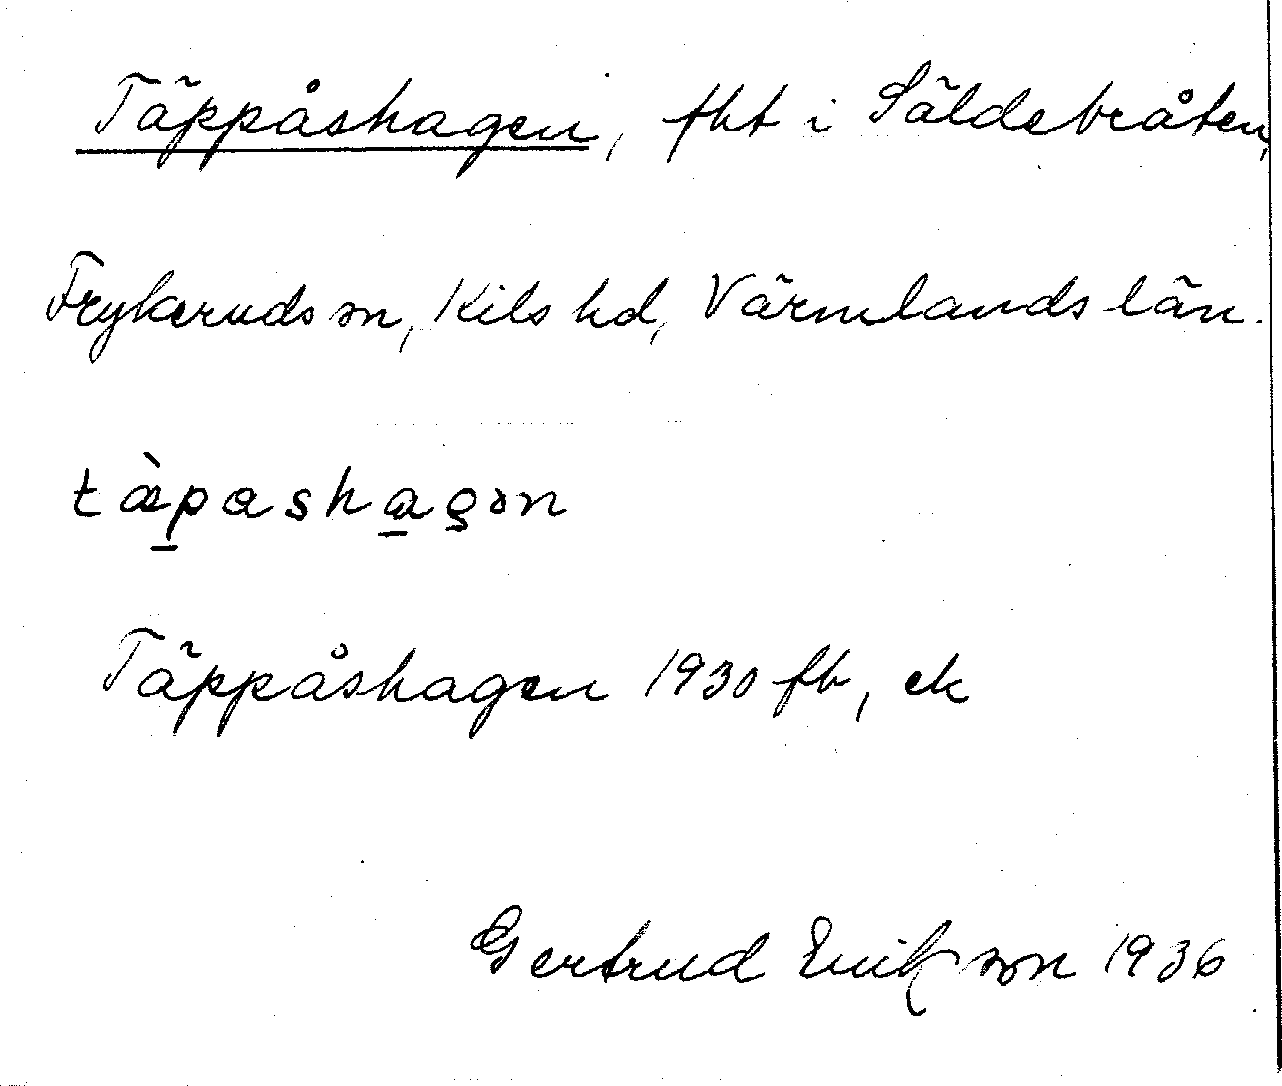 Täppåshagen, fht i Säldebråten,
Frykeruds sn, Kils hd, Värmlands län.
tæ̀p̠asha̠gən
Täppåshagen 1930 fb, ek
Gertrud Erikson 1936